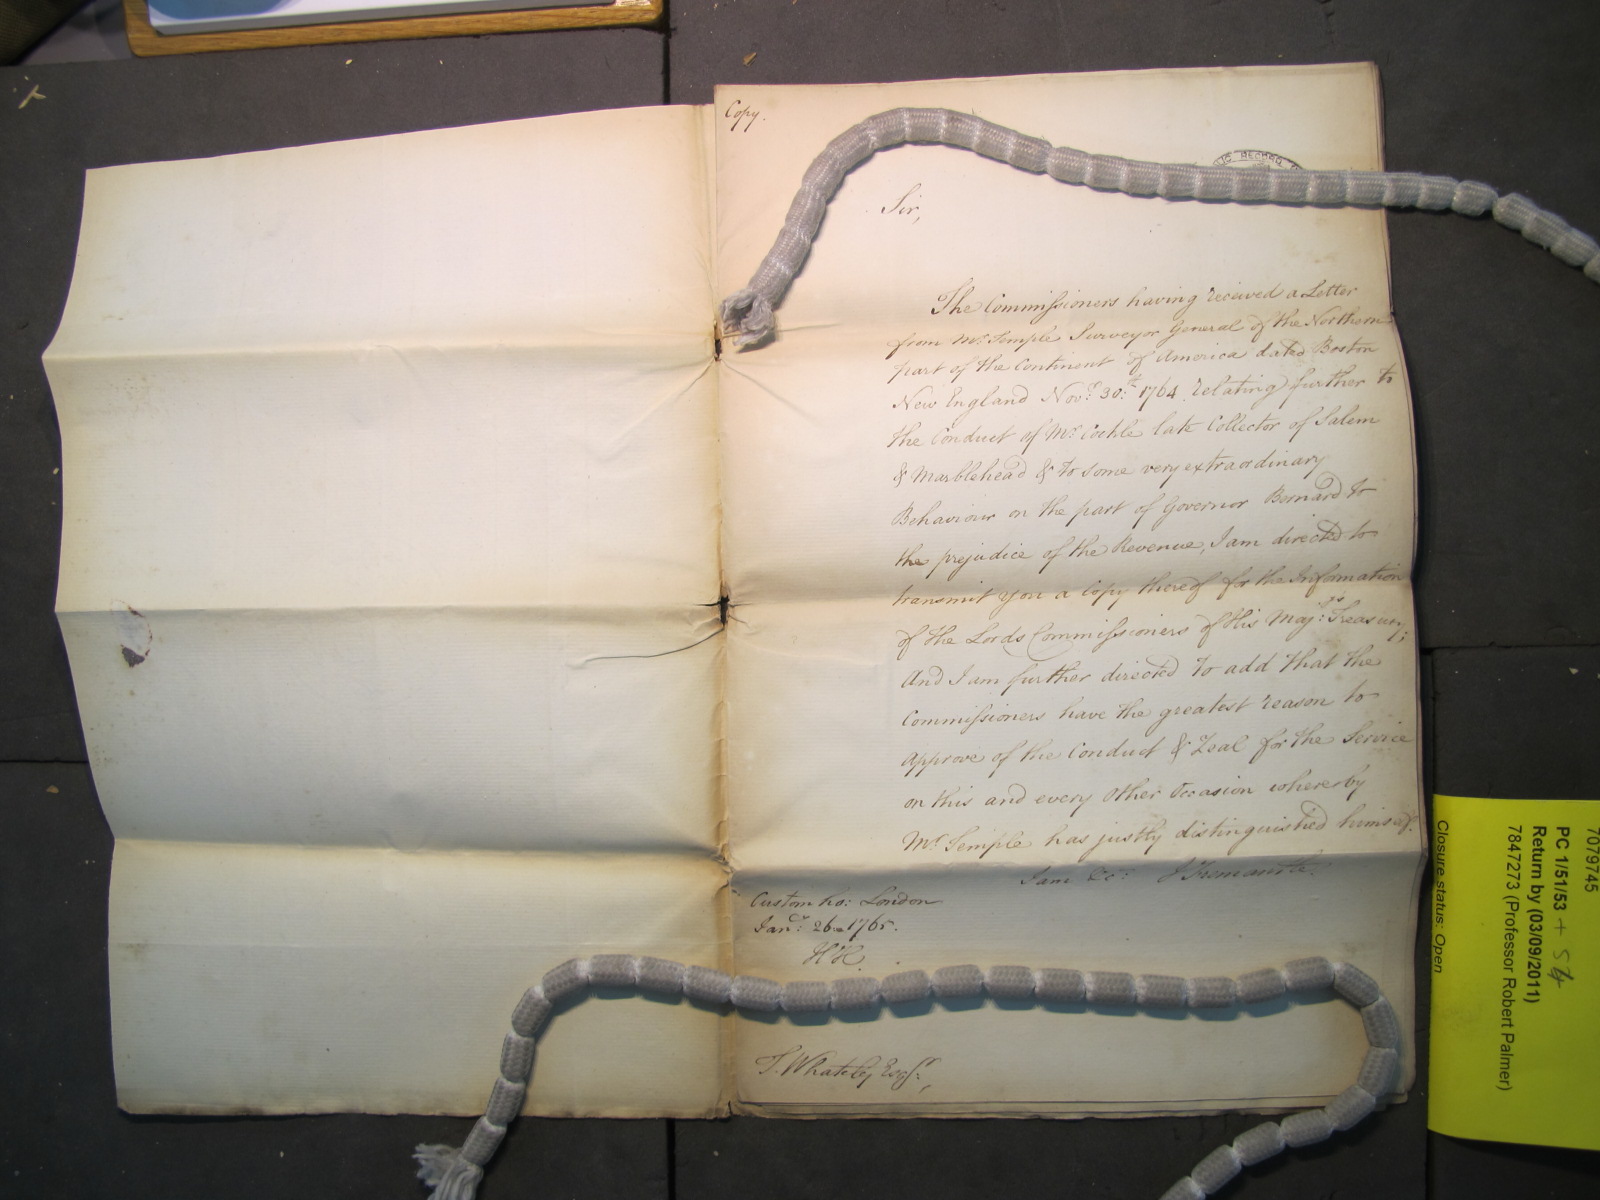 Copy.
Sir,
The Commissioners having received a Letter
from Mr. Temple Surveyor General of the Northern
part of the Continent of America dated Boston
New England Novr. 30th: 1764 relating further to
the Conduct of Mr. Cockle late Collector of Salem
& Marblehead & to some very extraordinary
Behaviour on the part of Governor Bernard to
the prejudice of the Revenue, I am directed to
transmit you a Copy thereof for the Information
of the Lords Commissioners of His Majts: Treasury;
And I am further directed to add that the
Commissioners have the greatest reason to
approve of the Conduct & Zeal for the Service
on this and every other Occasion whereby
Mr. Temple has justly distinguished himself.
I am &c: J Fremantle.
Custom ho: London
Janry: 26 1765.
T. Whately Esqr:,
RECORD
7079745
PC 1/51/53 + 54
Return by (03/09/2011)
7847273 (Professor Robert Palmer)
Closure status: Open